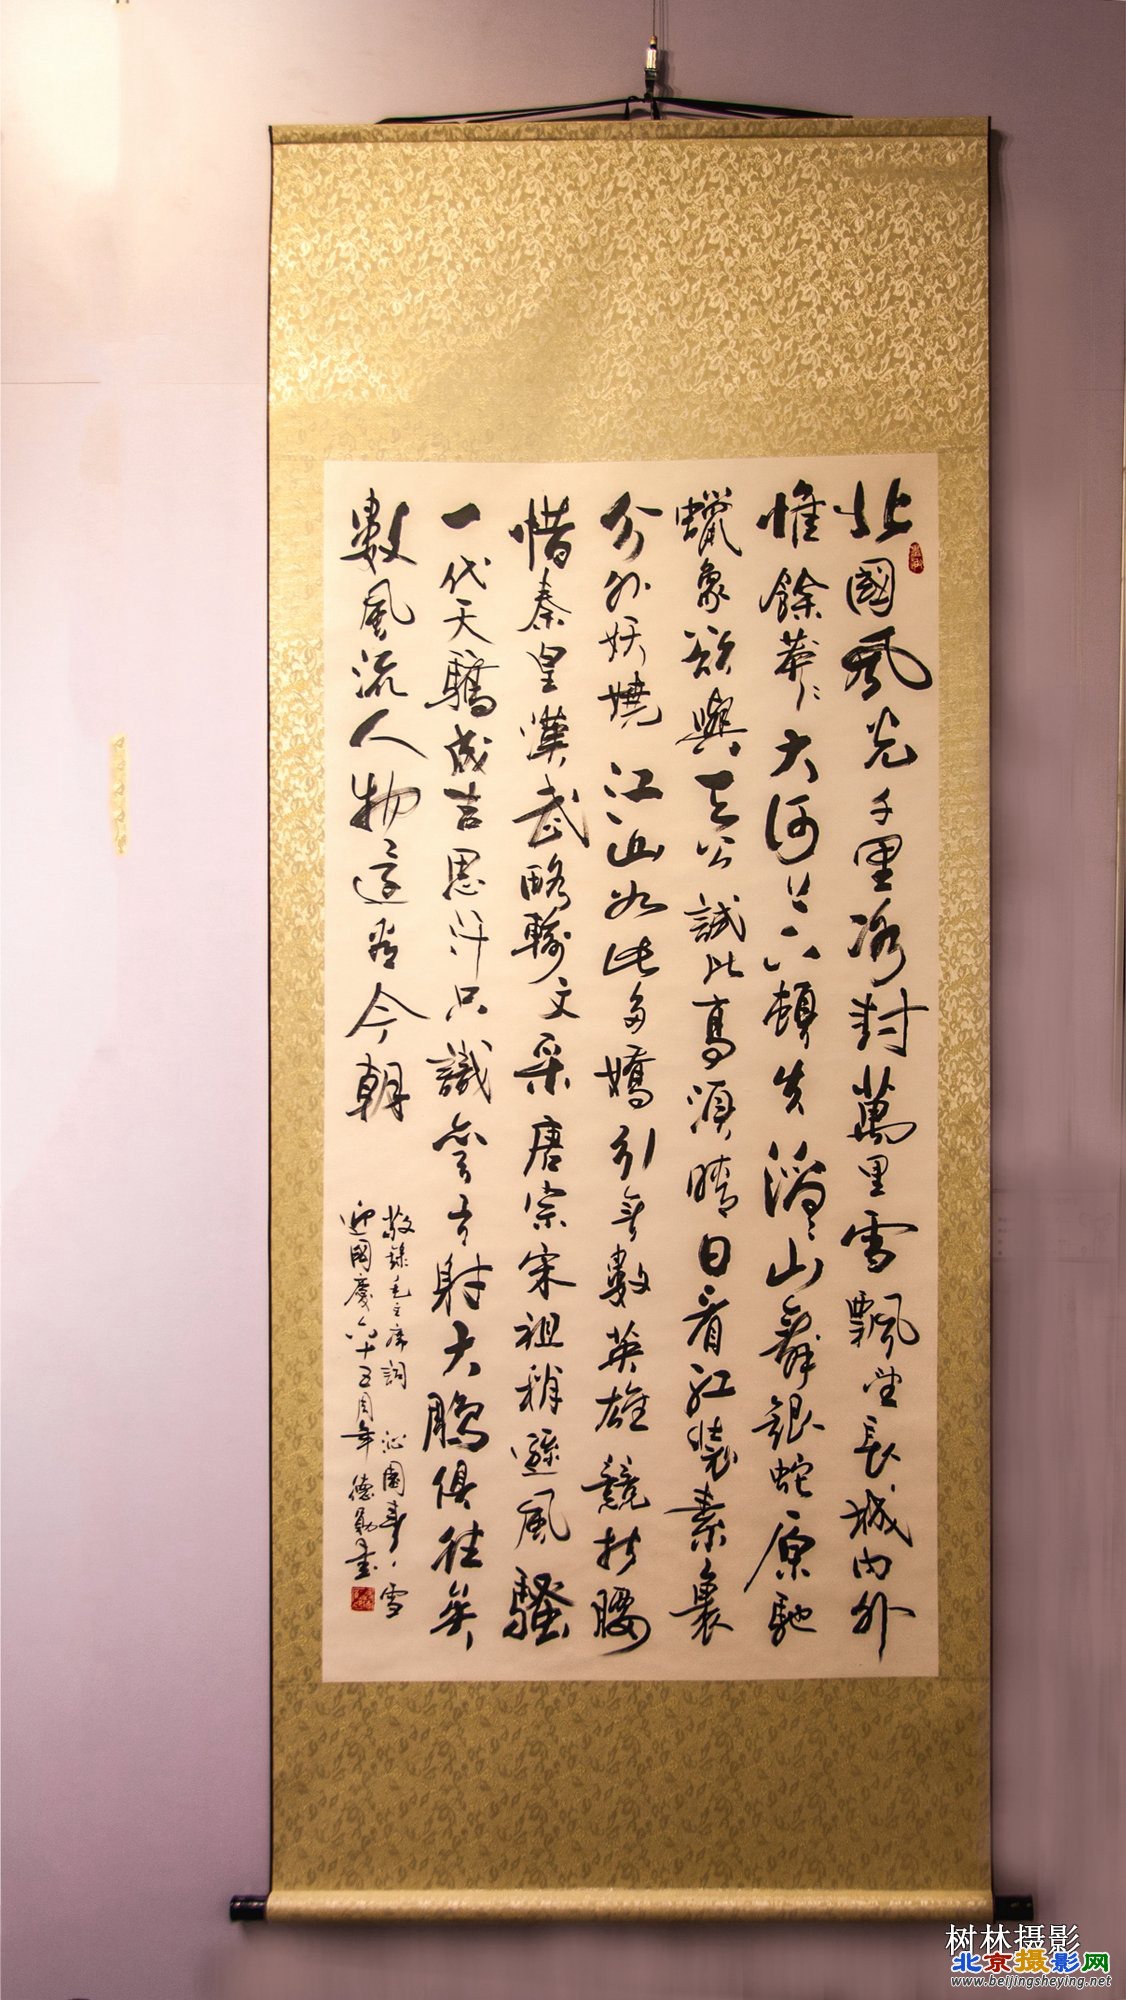 北國風光千里冰封萬里雪飄望長城內外
惟餘莽々大河上下頓失滔々山舞銀蛇原馳
蠟象欲與天公試比高須晴日看紅裝素裹
分外妖嬈江山如此多嬌引無數英雄競折腰
惜秦皇漢武略輸文采唐宗宋祖稍遜風騷
一代天驕成吉思汗只識彎弓射大鵰俱往矣
數風流人物還看今朝
敬錄毛主席詞 沁園春·雪
迎國慶六十五周年 德書
树林摄影
北京摄影网
www.beijingsheying.net